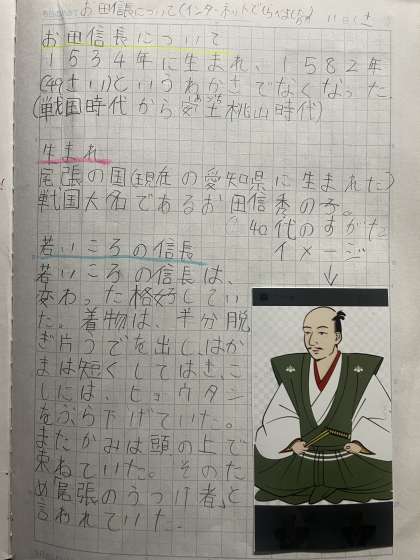 お田信長について(インターネットで
お田信長について
1534年に生まれ、1582年
(49さい)というわかさでなくなった
(戦国時代から安土桃山時代)
生まれ
尾張の国(現在の愛知県に生まれた)
戦国大名であるお田信秀の子。
40代のすがた
イメージ
若いころの信長
若いころの信長は、
変わった格好してい
た。着物は、半分脱
ぎ片うでを出し、はか
まは短くしてはき、こ
しには、ヒョウタン
をぶら下げていた。
またかみは頭の上で
束ねていた。そのた
め「尾張のうつけ者」と
言われていた.